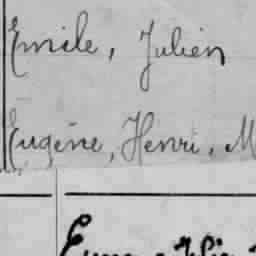 Emile, Julien
Eugène, Henri, M